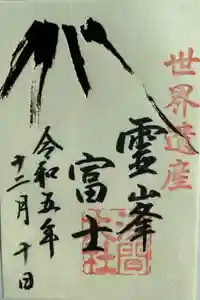 世界遺産
霊峯
富士
令和五年
十二月十日
浅間
神社